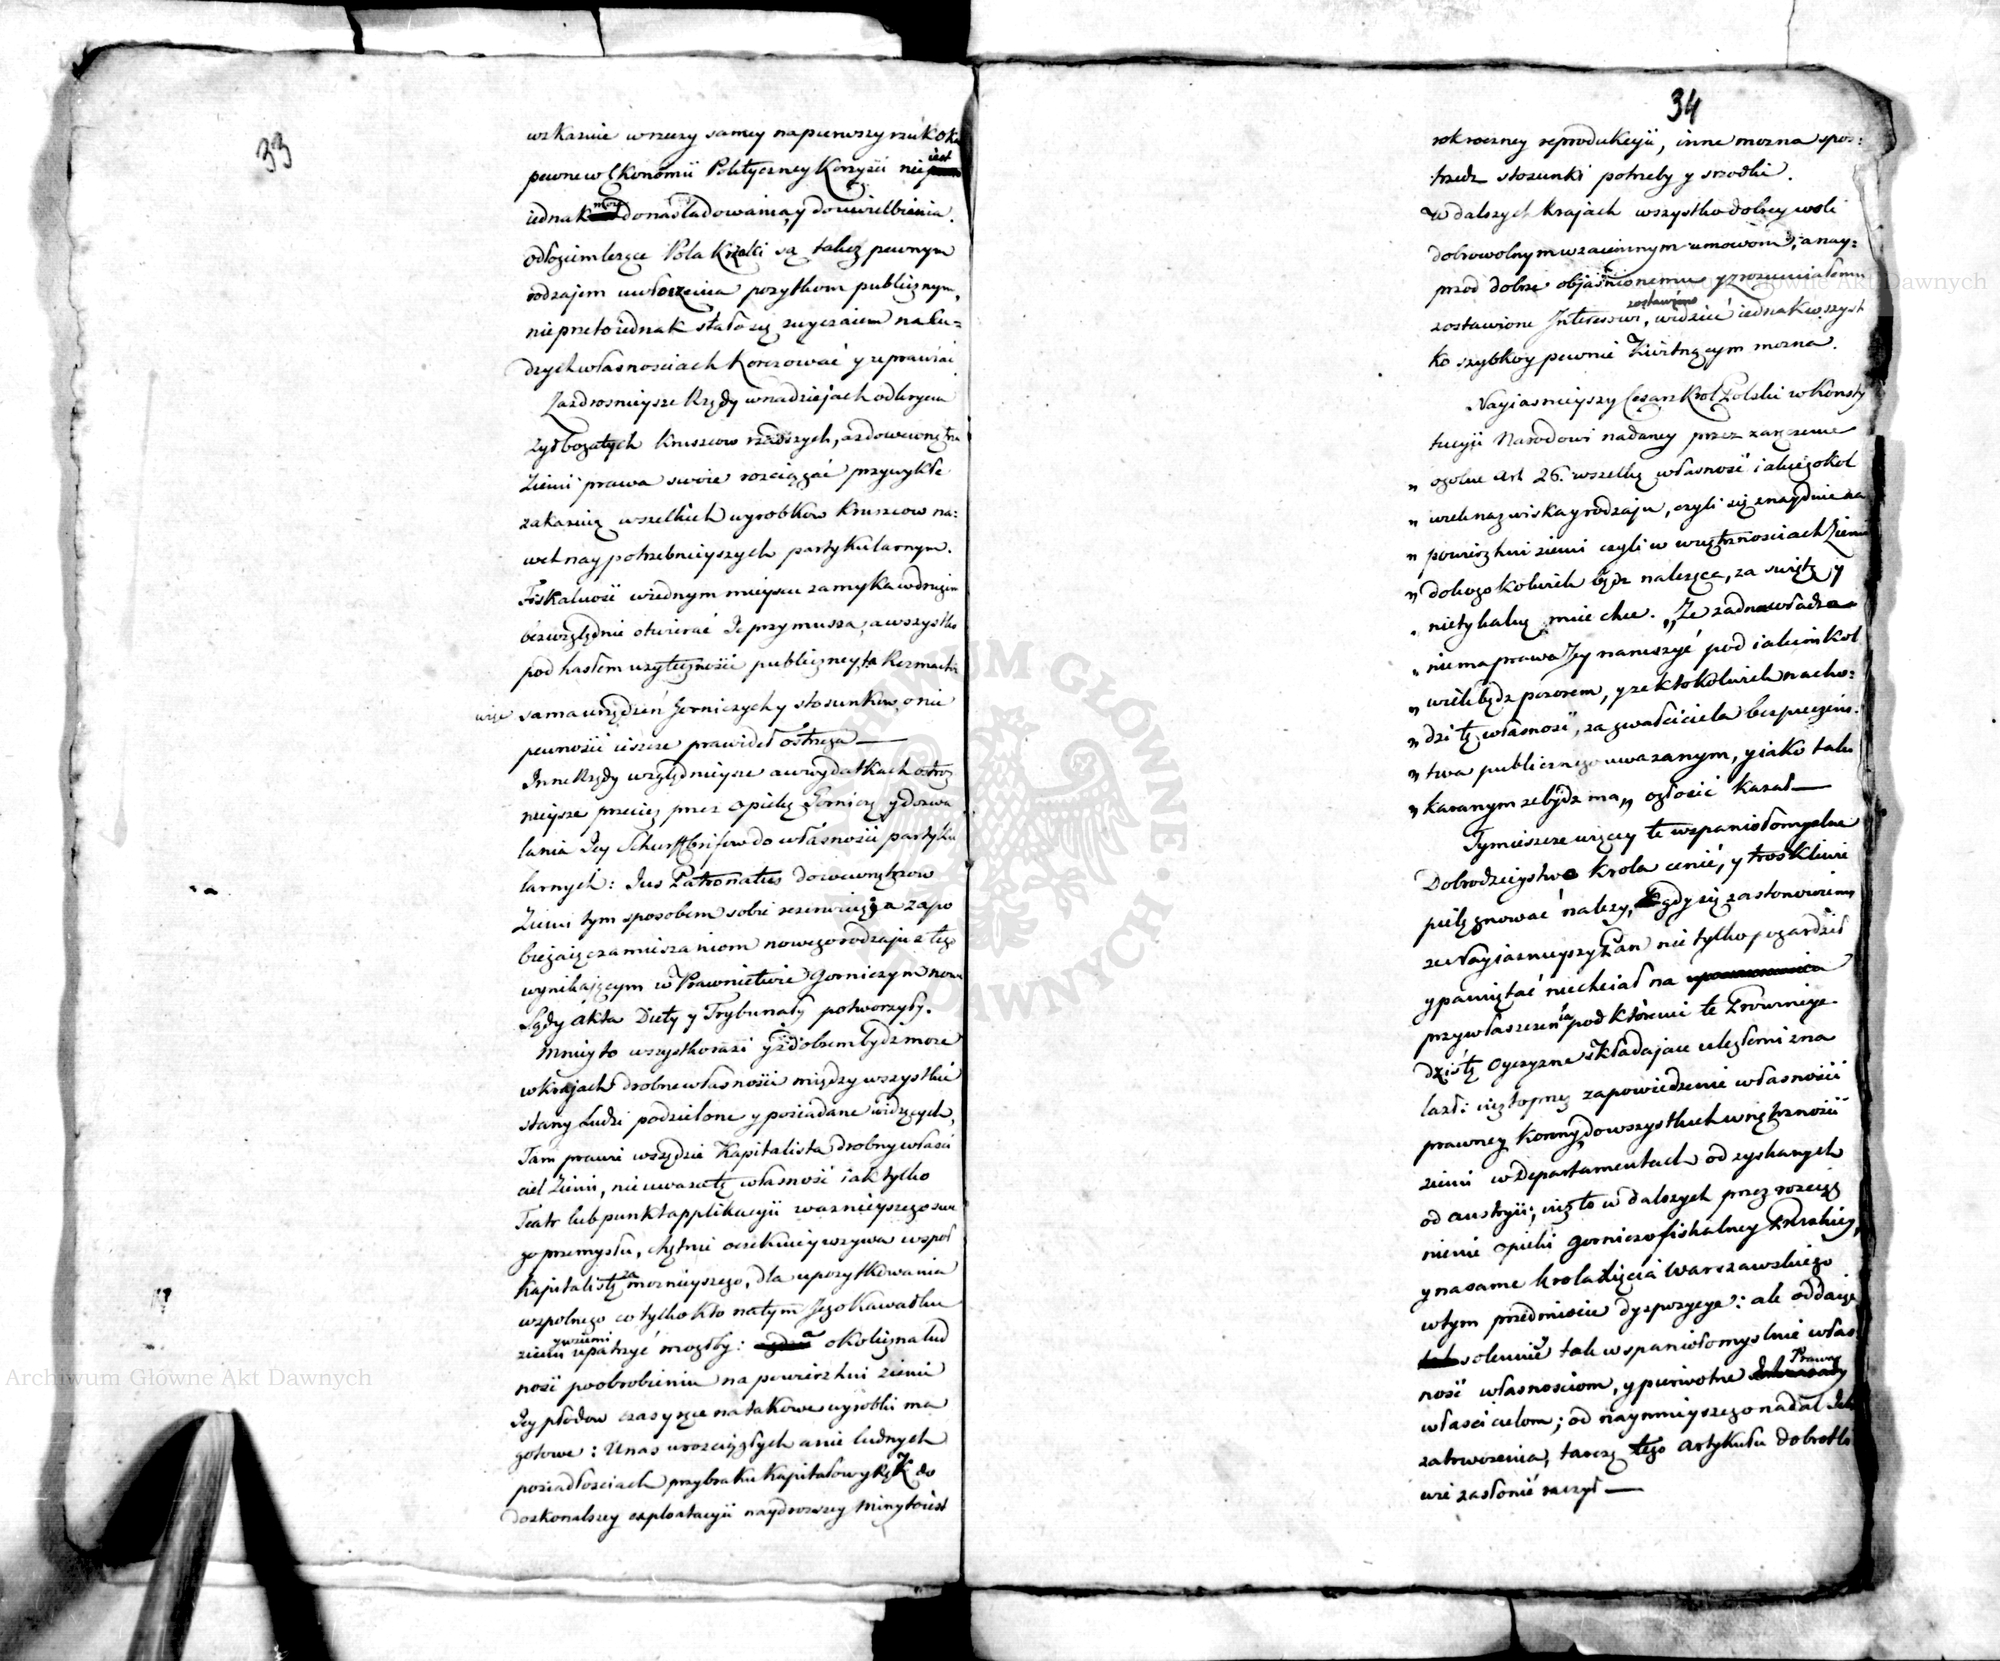 33
wskazuie w rzeczy samey na pierwszy rzut oka
pewne w Ekonomii Politycznej Korzyści nie iest
iednak do nasladowania, y do uwielbienia.
odłogiem leżące Pola Rzeki są także pewnym
rodzajem uwłoczenia pożytkom publicznym,
nieprzeto iednak stało się zwyczaiem na cu=
dzych własnosciach Korczować y uprawiać
Zazdrosnieysze Rządy w nadziejach odkrycia
Żył bogatych kruszcow rzadszych, aż do wewnątrz
Ziemi prawa swoie rozciągać przywykłe
zakazuią wszelkich wyrobków Kruszcow na=
wet naypotrzebnieyszych partykularnym.
Fiskalność w iednym mieyscu zamyka w drugim
bezwzględnie otwierać Je przymusza, a wszystko
pod hasłem użyteczności publiczney,
więc sama urządzeń Gorniczych y stosunkow, o nie
pewności ieszcze prawideł ostrzega
Inne Rządy względnieysze a w wydatkach ostroż
nieysze przecięż przez opiekę Gorniczą y dozwa
lania Jey Schurffbrifow do własności partyku
larnych: Jus Patronatus do wewnątrzow
Ziemi tym sposobem sobie rezerwuią, a zapo
biegaiąc zamieszaniom nowego rodzaju z tąd
wynikającym w Prawnictwie Gorniczym nowe
Sądy Akta Diety y Trybunały potworzyły.
Mniey to wszystko razi y zdobrem bydź może
w krajach drobne własności między wszystkie
stany Ludzi podzielone y posiadane widzących,
Tam prawie wszędzie Kapitalista drobny właści
ciel Ziemi, nie uważa tę własność iak tylko
Teatr lub punkt applikacyii ważnieyszego swe
go przemysłu, chętnie oczekuie y wzywa wspoł
Kapitalistę zamożnieyszego, dla upożytkowania
wspolnego co tylko kto na tym Jego Kawałku
ziemi y w ziemi upatrzyć mogłby: a okoliczna lud
ność po obrobieniu na powierzchni ziemi
Jey płodow czasy y ręce na takowe wyrobki ma
gotowe: U nas w rozciągłych a nie ludnych
posiadłosciach przy braku Kapitałow y Rąk do
doskonalszey exploatacyii naydroższey Miny to iest
34
rokroczney reprodukcyii, inne można spos=
trzedz stosunki potrzeby y srzodki.
W dalszych Krajach wszystko dobrey woli
dobrowolnym wzaiemnym umowom, a nay=
przod dobrze objaśnionemu y zrozumiałemu
zostawione Interessowi, zostawione widzieć iednak wszyst
ko szybko y pewnie Kwitnącym można.
Nayiasnieyszy Cesarz Krol Polski w Konsty
tucyii Narodowi nadaney przez zaręczenie
„ ogolne Art 26. wszelką własność iakiegokol
„ wiek nazwiska y rodzaju, czyli się znayduie na
„ powierzchni ziemi czyli w wnętrznosciach Ziemi
„ do kogo kolwiek bądz należąca, za swiętą y
„ nietykalną mieć chce. „Że żadna władza
„ nie ma prawa Jey naruszyć pod iakimkol
„ wiek bądz pozorem, y że ktokolwiek nacho=
„ dzi tę własność, za gwałciciela bezpieczeńs=
„ twa publicznego uważanym, y iako taki
„ karanym że bydz ma„ ogłosić kazał
Tym ieszcze więcey te wspaniałomyslne
Dobrodzieystwo Krola cenić, y troskliwie
pielęgnować należy, gdy się zastanowiemy
że Nayiasnieyszy Pan nie tylko pogardził
y pamiętać niechciał na
przywłaszczenia pod któremi te Prowincye
dziś tę oyczyznę składające uległemi zna
lazł: więc to przez zapowiedzenie własności
prawney korony do wszystkich wnętrzności
ziemi w Departamentach odzyskanych
od Austryii; więc to w dalszych przez rozcią
nienie opieki gorniczo fiskalney Pruskiey,
y na same krola Xięcia Warszawskiego
w tym przedmiocie dyspozycye: ale oddając
solennie tak wspaniałomyslnie włas
ność własnosciom, y pierwotne Prawa
własscicielom; od naymnieyszego nadal Ich
zatrwożenia, tarczą tego Artykułu dobrotli
wie zasłonić raczył
Archiwum Główne Akt Dawnych
Archiwum Główne Akt Dawnych
ARCHIWUM GŁÓWNE AKT DAWNYCH